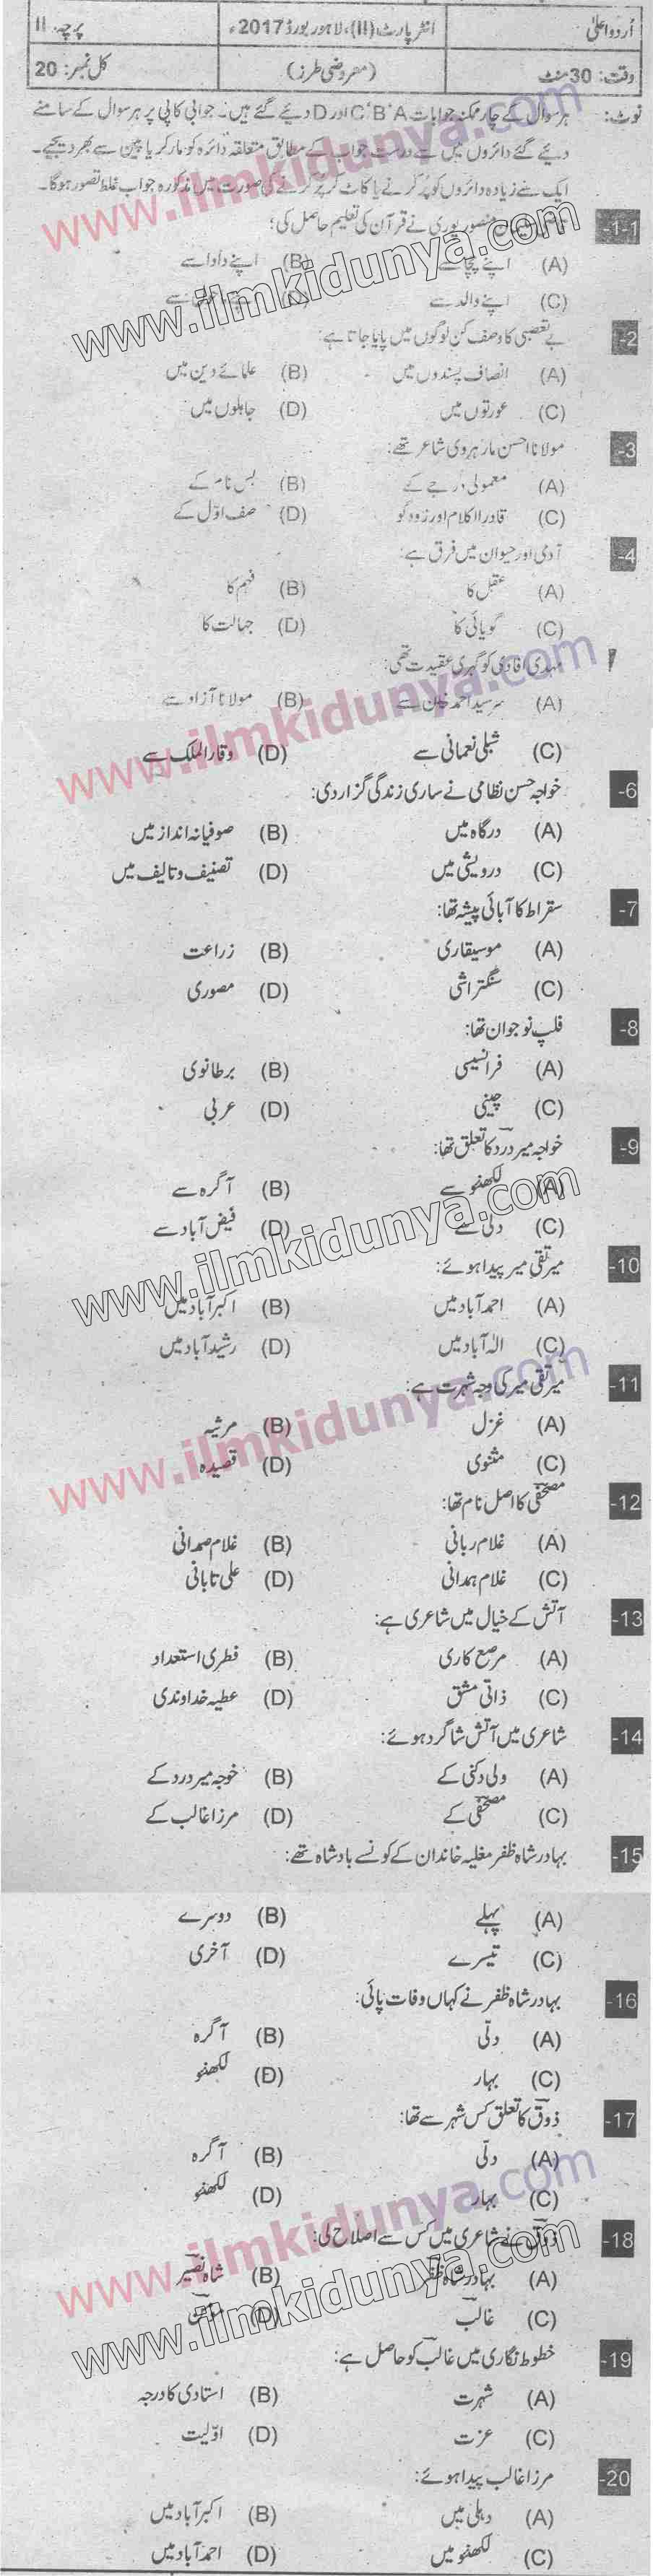 اُردو اعلیٰ انٹر پارٹ (II)، لاہور بورڈ 2017ء پرچہ: II
وقت: 30 منٹ (معروضی طرز) کل نمبر: 20
نوٹ: ہر سوال کے چار ممکنہ جوابات C'B'A اور D دیئے گئے ہیں۔ جوابی کاپی پر ہر سوال کے سامنے
دیئے گئے دائروں میں سے درست جواب کے مطابق متعلقہ دائرہ کو مارکر یا پین سے بھر دیجیے۔
ایک سے زیادہ دائروں کو پُر کرنے یا کاٹ کر پُر کرنے کی صورت میں مذکورہ جواب غلط تصور ہوگا۔
1-1- منصور پوری نے قرآن کی تعلیم حاصل کی؟
(A) اپنے چچا سے (B) اپنے دادا سے
(C) اپنے والد سے (D) سے
2- بے تعصبی کا وصف کن لوگوں میں پایا جاتا ہے:
(A) انصاف پسندوں میں (B) علمائے دین میں
(C) عورتوں میں (D) جاہلوں میں
3- مولانا احسن مارہروی شاعر تھے:
(A) معمولی درجے کے (B) بس نام کے
(C) قادرالکلام اور زودگو (D) صف اوّل کے
4- آدمی اور حیوان میں فرق ہے:
(A) عقل کا (B) فہم کا
(C) گویائی کا (D) جہالت کا
مہدی افادی کو گہری عقیدت تھی:
(A) سرسید احمد خان سے (B) مولانا آزاد سے
(C) شبلی نعمانی سے (D) وقار الملک سے
6- خواجہ حسن نظامی نے ساری زندگی گزار دی:
(A) درگاہ میں (B) صوفیانہ انداز میں
(C) درویشی میں (D) تصنیف و تالیف میں
7- سقراط کا آبائی پیشہ تھا:
(A) موسیقاری (B) زراعت
(C) سنگتراشی (D) مصوری
8- فلپ نوجوان تھا:
(A) فرانسیسی (B) برطانوی
(C) چینی (D) عربی
9- خواجہ میر درد کا تعلق تھا:
(A) لکھنؤ سے (B) آگرہ سے
(C) دلی سے (D) فیض آباد سے
10- میر تقی میر پیدا ہوئے:
(A) احمد آباد میں (B) اکبر آباد میں
(C) الٰہ آباد میں (D) رشید آباد میں
11- میر تقی میر کی وجہ شہرت ہے:
(A) غزل (B) مرثیہ
(C) مثنوی (D) قصیدہ
12- مصحفی کا اصل نام تھا:
(A) غلام ربانی (B) غلام صمدانی
(C) غلام ہمدانی (D) علی تابانی
13- آتش کے خیال میں شاعری ہے:
(A) مرصع کاری (B) فطری استعداد
(C) ذاتی مشق (D) عطیہ خداوندی
14- شاعری میں آتش شاگرد ہوئے:
(A) ولی دکنی کے (B) خوجہ میر درد کے
(C) مصحفی کے (D) مرزا غالب کے
15- بہادر شاہ ظفر مغلیہ خاندان کے کونسے بادشاہ تھے:
(A) پہلے (B) دوسرے
(C) تیسرے (D) آخری
16- بہادر شاہ ظفر نے کہاں وفات پائی:
(A) دلّی (B) آگرہ
(C) بہار (D) لکھنؤ
17- ذوق کا تعلق کس شہر سے تھا:
(A) دلّی (B) آگرہ
(C) بہار (D) لکھنؤ
18- ذوق نے شاعری میں کس سے اصلاح لی:
(A) بہادر شاہ ظفر (B) شاہ نصیر
(C) غالب (D)
19- خطوط نگاری میں غالب کو حاصل ہے:
(A) شہرت (B) استادی کا درجہ
(C) عزت (D) اوّلیت
20- مرزا غالب پیدا ہوئے:
(A) دہلی میں (B) اکبر آباد میں
(C) لکھنؤ میں (D) احمد آباد میں
www.ilmkidunya.com
www.ilmkidunya.com
www.ilmkidunya.com
www.ilmkidunya.com
www.ilmkidunya.com
www.ilmkidunya.com
www.ilmkidunya.com